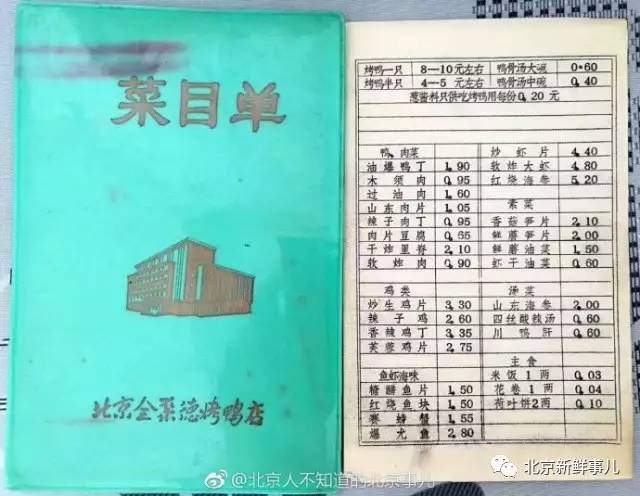 菜目单
北京全聚德烤鸭店
烤鸭一只 8—10元左右 鸭骨汤大碗 0.60
烤鸭半只 4—5元左右 鸭骨汤中碗 0.40
葱酱料只供吃烤鸭用每份0.20元
鸭、肉菜
油爆鸭丁 1.90
木须肉 0.95
过油肉 1.60
山东肉片 1.05
辣子肉丁 0.95
肉片豆腐 0.65
干炸里脊 2.10
软炸肉 0.90
鸡类
炒生鸡片 3.30
辣子鸡 2.60
香辣鸡丁 3.35
芙蓉鸡片 2.75
鱼虾海味
糟醋鱼片 1.50
红烧鱼块 1.50
赛螃蟹 1.55
爆尤鱼 2.80
炒虾片 4.40
软炸大虾 4.80
红烧海参 5.20
素菜
香菇笋片 2.10
鲜蘑笋片 2.00
鲜蘑油菜 1.50
虾干油菜 0.60
汤菜
山东海参 2.00
四丝酸辣汤 0.60
川鸭肝 0.60
主食
米饭1两 0.03
花卷1两 0.04
荷叶饼2两 0.10
@北京人不知道的北京事儿
北京新鲜事儿